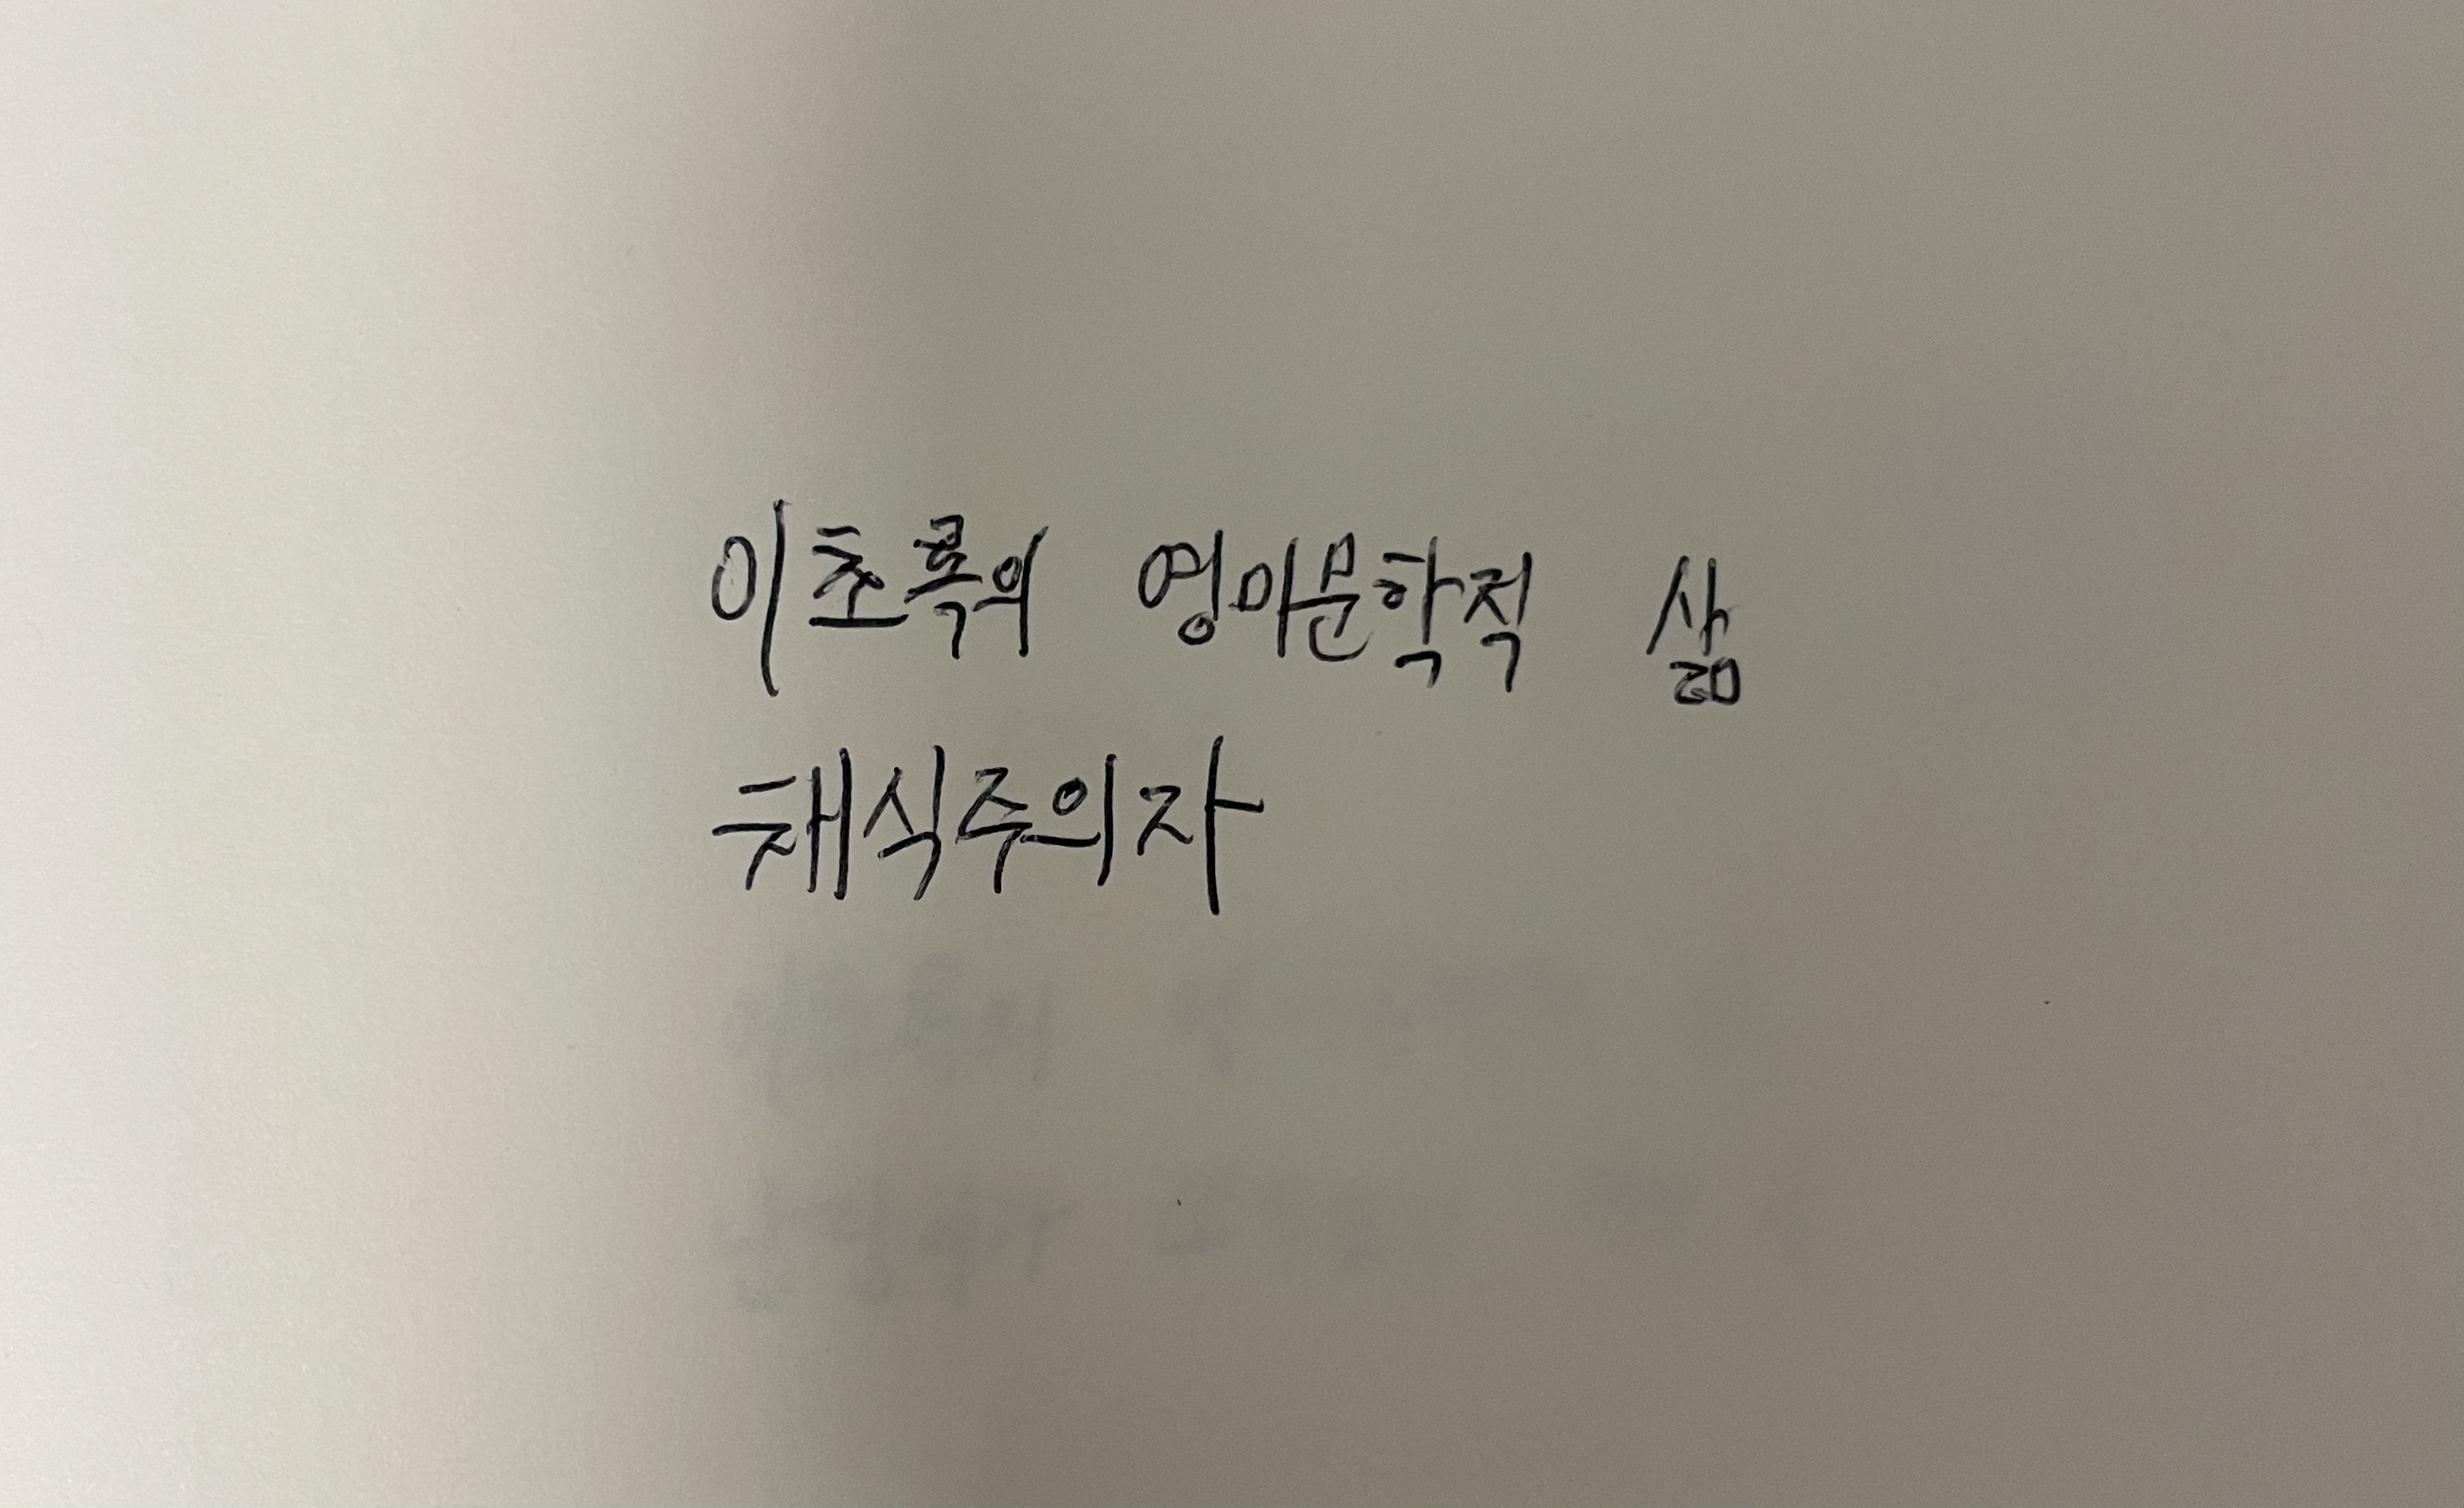 이초록의 영미문학적 삶
채식주의자